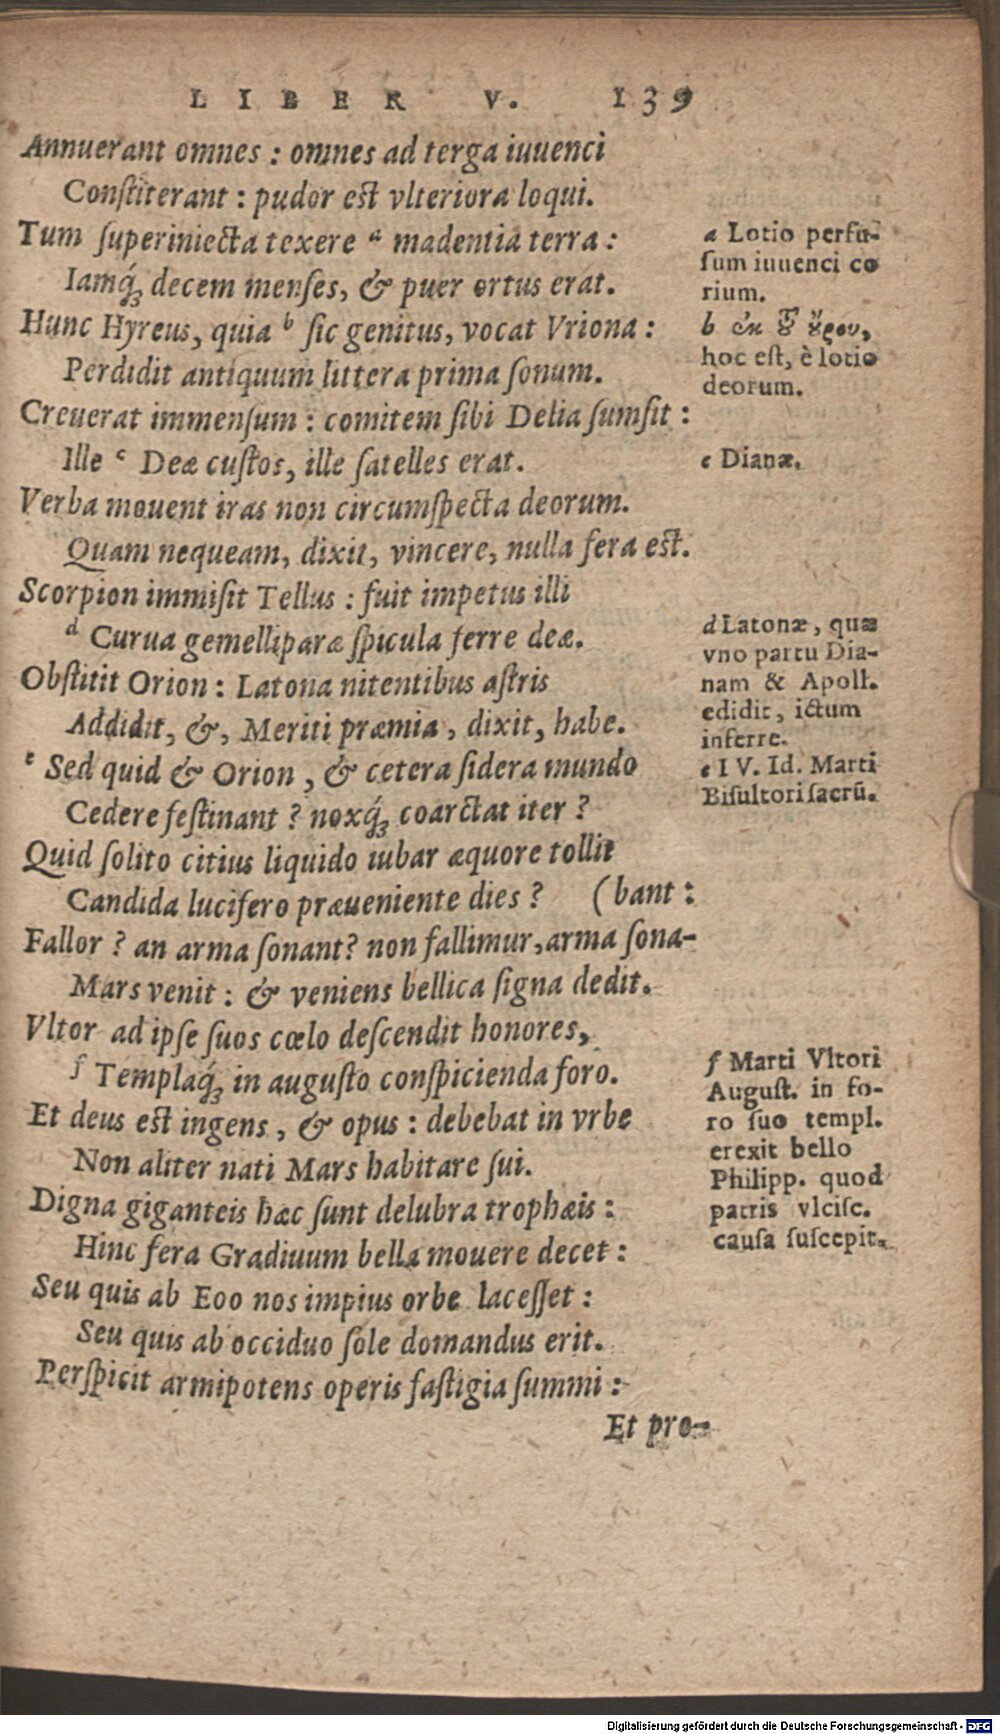 LIBER V. 139
Annuerant omnes : omnes ad terga iuuenci
Conſtiterant : pudor eſt vlteriora loqui.
Tum ſuperiniecta texere ᵃ madentia terra :
Iamq́ꝫ decem menſes, & puer ortus erat.
Hunc Hyreus, quia ᵇ ſic genitus, vocat Vriona :
Perdidit antiquum littera prima ſonum.
Creuerat immenſum : comitem ſibi Delia ſumſit :
Ille ᶜ Deæ cuſtos, ille ſatelles erat.
Verba mouent iras non circumſpecta deorum.
Quam nequeam, dixit, vincere, nulla fera eſt.
Scorpion immiſit Tellus : fuit impetus illi
ᵈ Curua gemelliparæ ſpicula ferre deæ.
Obſtitit Orion : Latona nitentibus aſtris
Addidit, &, Meriti præmia, dixit, habe.
ᵉ Sed quid & Orion, & cetera ſidera mundo
Cedere feſtinant ? noxq́ꝫ coarctat iter ?
Quid ſolito citius liquido iubar æquore tollit
Candida lucifero præueniente dies ? (bant :
Fallor ? an arma ſonant? non fallimur, arma ſona-
Mars venit : & veniens bellica ſigna dedit.
Vltor ad ipſe ſuos cœlo deſcendit honores,
ᶠ Templaq́ꝫ in auguſto conſpicienda foro.
Et deus eſt ingens, & opus : debebat in vrbe
Non aliter nati Mars habitare ſui.
Digna giganteis hæc ſunt delubra trophæis :
Hinc fera Gradiuum bella mouere decet :
Seu quis ab Eoo nos impius orbe laceſſet :
Seu quis ab occiduo ſole domandus erit.
Perſpicit armipotens operis faſtigia ſummi :
Et pro-
a Lotio perfu-
ſum iuuenci co
rium.
b ἐκ τοῦ οὔρου,
hoc eſt, è lotio
deorum.
c Dianæ.
d Latonæ, quæ
vno partu Dia-
nam & Apoll.
edidit, ictum
inferre.
e IV. Id. Marti
Biſultori ſacrū.
f Marti Vltori
Auguſt. in fo-
ro ſuo templ.
erexit bello
Philipp. quod
patris vlciſc.
cauſa ſuſcepit.
Digitalisierung gefördert durch die Deutsche Forschungsgemeinschaft - DFG